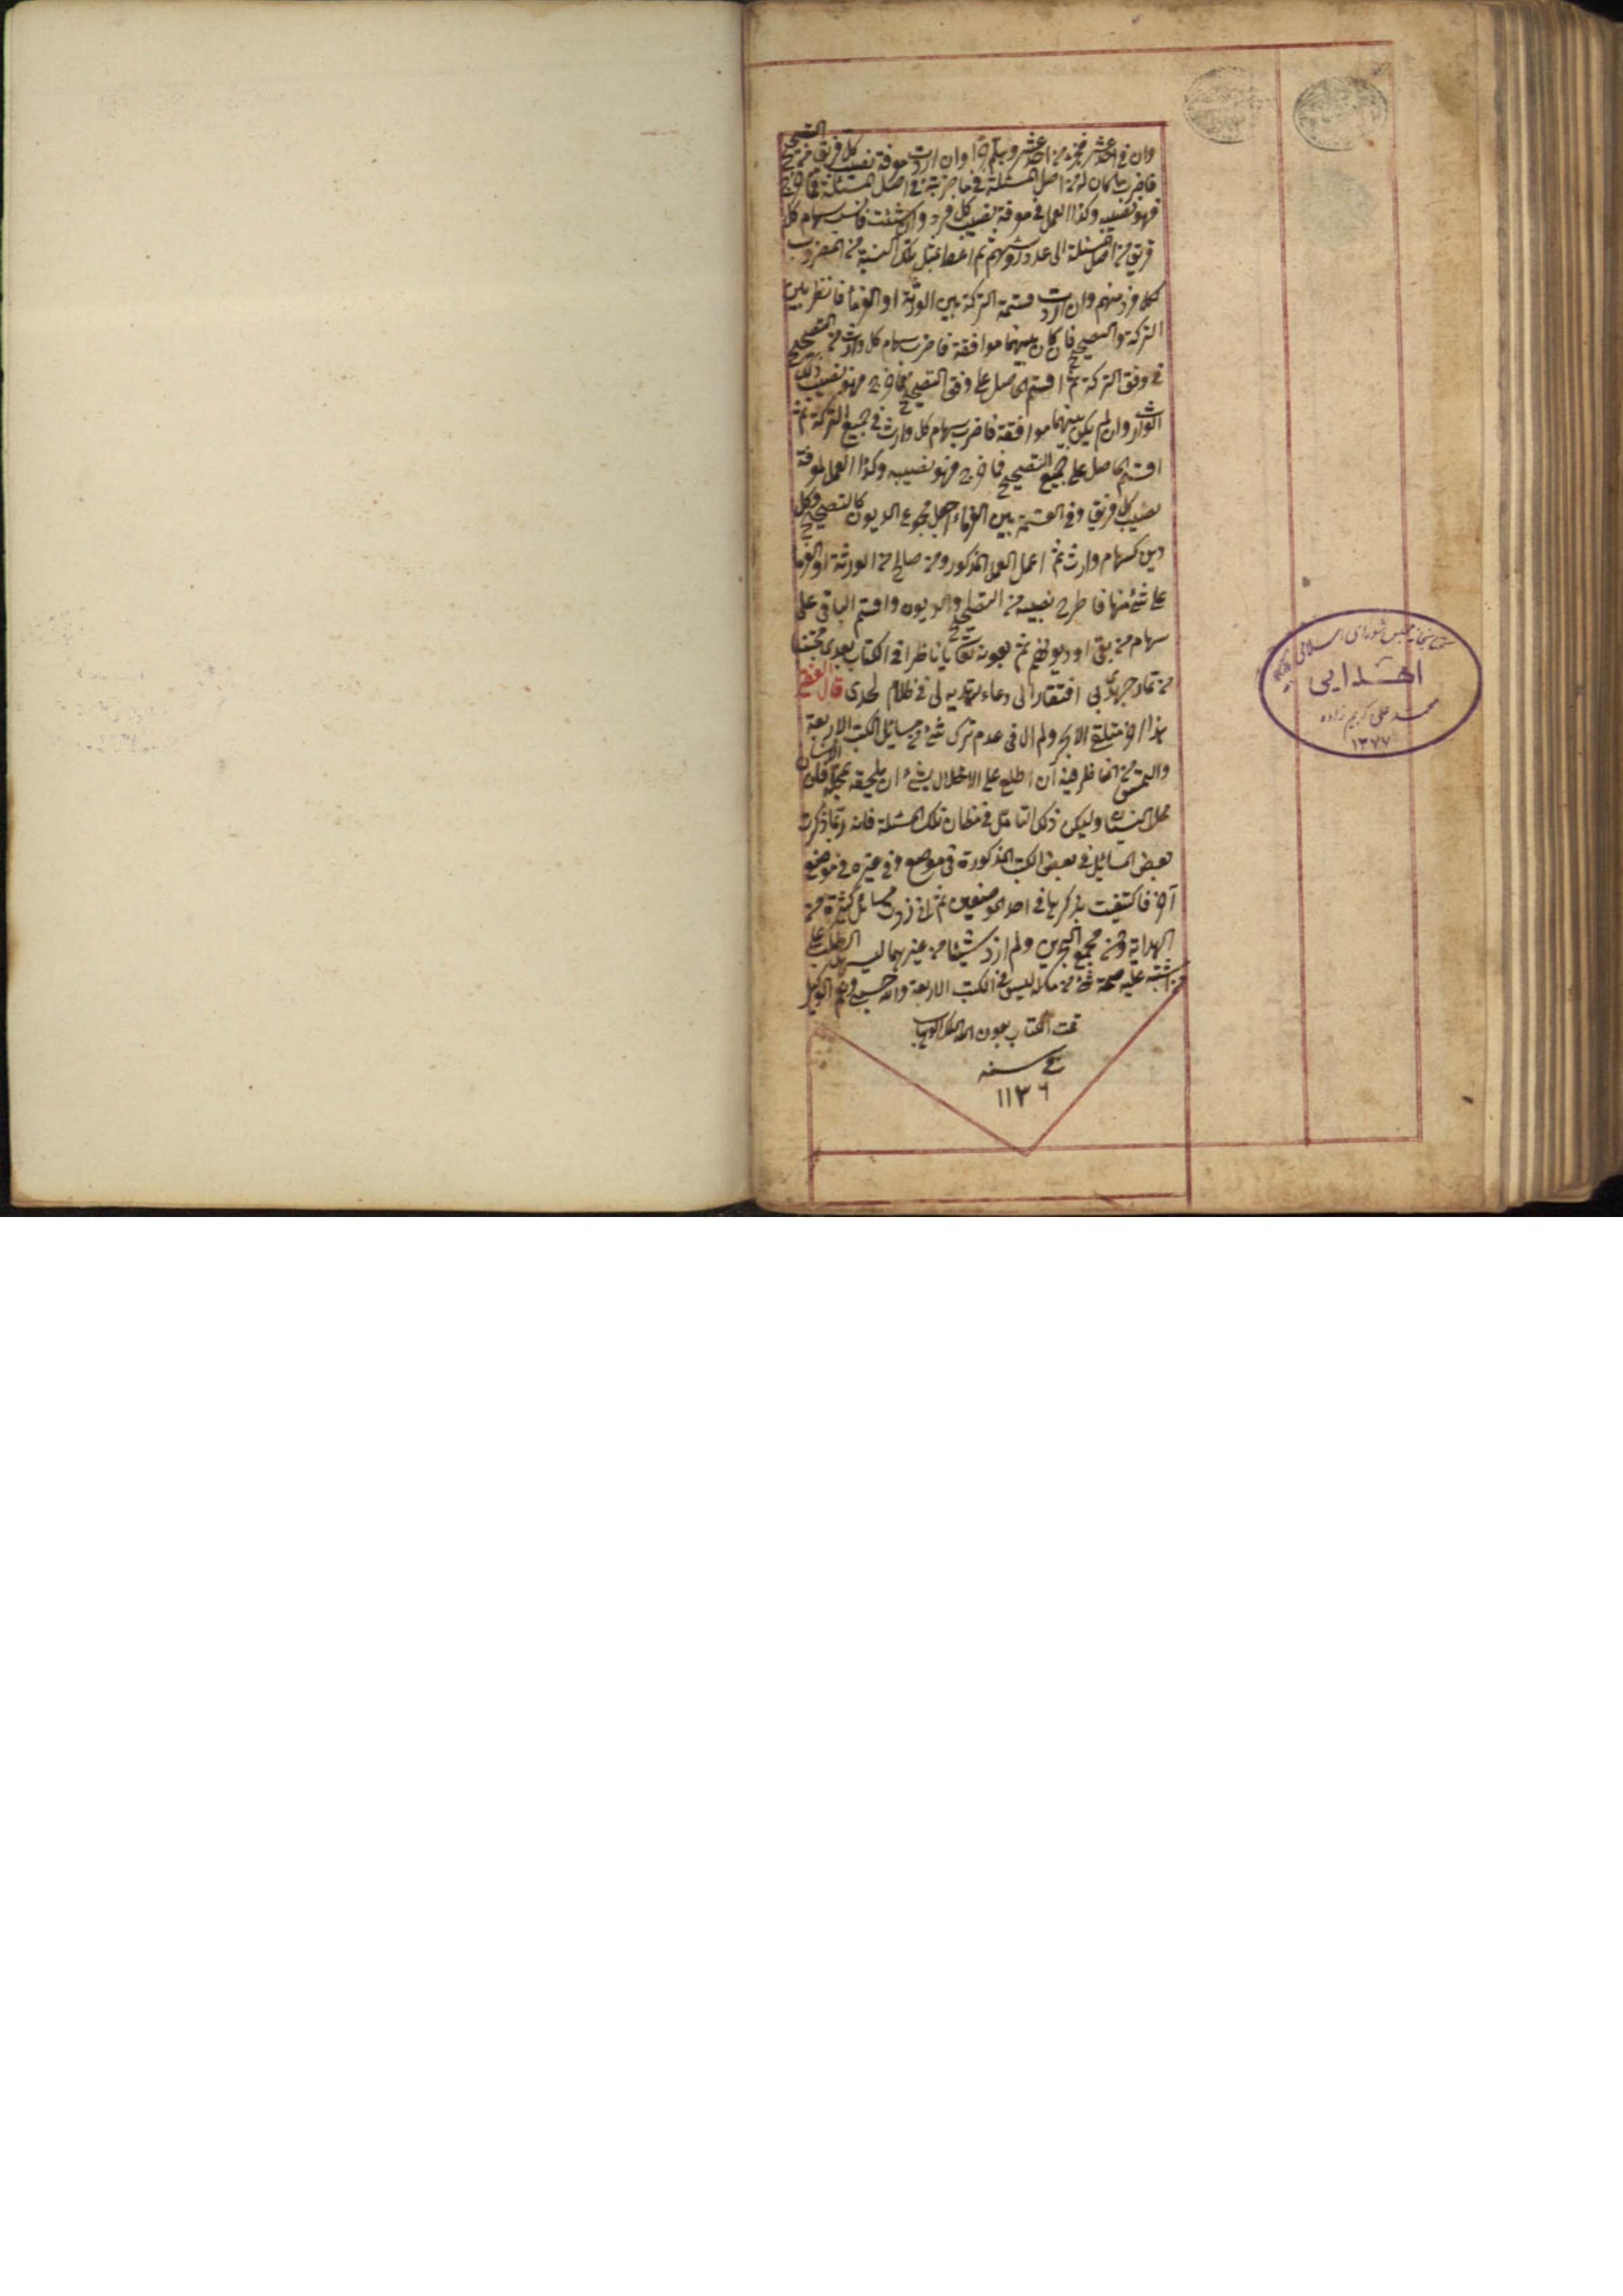 وان في احد عشر فجزء من احد عشر وهلم جرا وان اردت معرفة نصيب كل فريق من التصحيح
فاضرب ما كان له من اصل المسئلة في ما ضربته في اصل المسئلة فما خرج
فهو نصيبه وكذا العمل في معرفة نصيب كل فرد وان شئت فانسب سهام كل
فريق من اصل المسئلة الى عدد رؤسهم ثم اعط بمثل تلك النسبة من المضروب
لكل فرد منهم وان اردت قسمة التركة بين الورثة او الغرماء فانظر بين
التركة والتصحيح فان كان بينهما موافقة فاضرب سهام كل وارث من التصحيح
في وفق التركة ثم اقسم الحاصل على وفق التصحيح فما خرج فهو نصيب ذلك
الوارث وان لم يكن بينهما موافقة فاضرب سهام كل وارث في جميع التركة ثم
اقسم الحاصل على جميع التصحيح فما خرج فهو نصيبه وكذا العمل لمعرفة
نصيب كل فريق وفي القسمة بين الغرماء اجعل مجموع الديون كالتصحيح وكل
دين كسهام وارث ثم اعمل العمل المذكور ومن صالح من الورثة او الغرما
على شئ منها فاطرح نصيبه من التصحيح والديون واقسم الباقي على
سهام من بقي او ديونهم ثم بعونه تعالى يا ناظرا في الكتاب بعدي مجتنيا
من ثمار جهدي بي افتقار الى دعاء تهديه لي في ظلام لحدي قال
هذا اخر ملتقى الابحر ولم ال في عدم ترك شئ من مسائل الكتب الاربعة
والتمس من الناظر فيه ان اطلع على الاخلال بشئ ان يلحقه بمحله فان الانسان
محل النسيان وليكن ذلك التأمل في مظان تلك المسئلة فانه ربما ذكرت
بعض المسائل في بعض الكتب المذكورة في موضع وفي غيره في موضع
آخر فاكتفيت بذكرها في احد الموضعين ثم اني زدت مسائل كثيرة من
الهداية ومن مجمع البحرين ولم ازد شيئا من غيرهما ليسهل الطلب على
من اشتبه عليه صحة شئ مما ليس في الكتب الاربعة والله حسبي ونعم الوكيل
تمت الكتاب بعون الملك الوهاب
في سنه
١١٣٦
كتابخانه مجلس شورای اسلامی
اهدایی
محمد علی کریم زاده
١٣٧٧